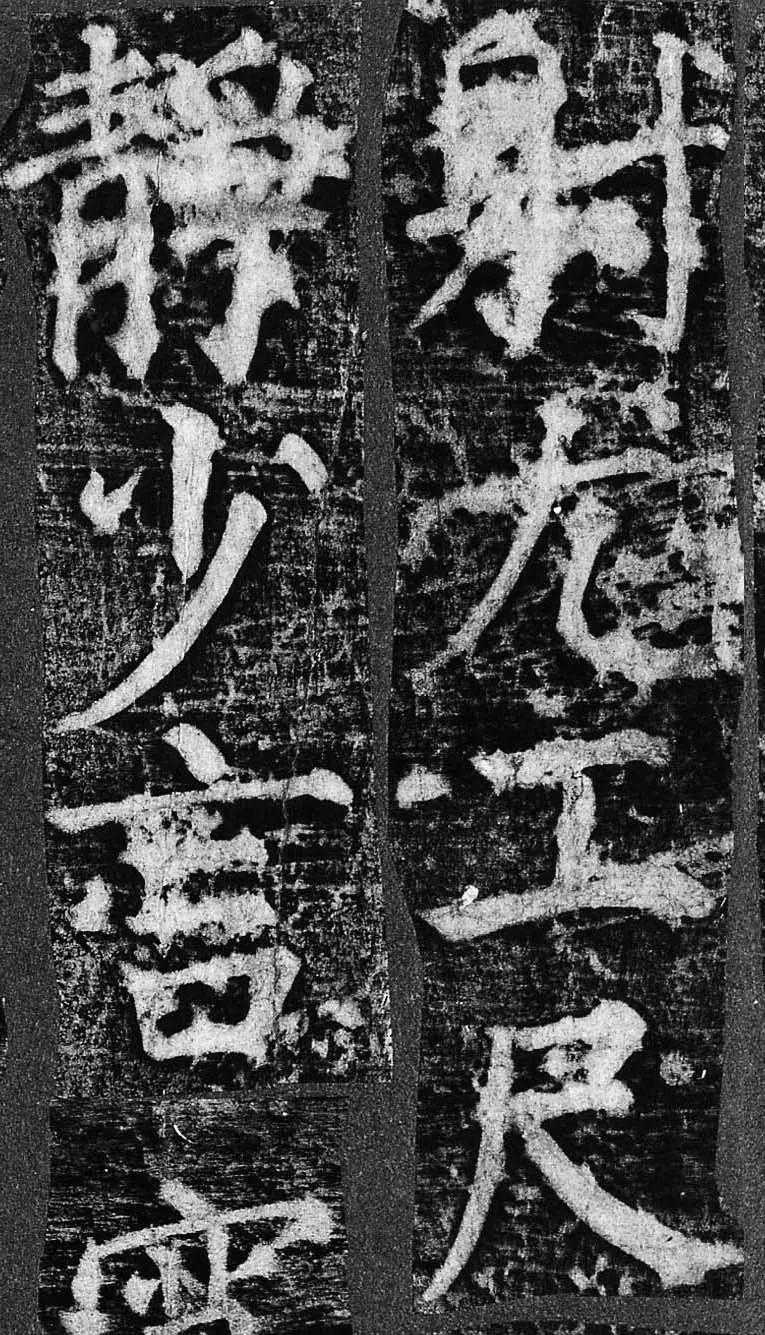 射尤工尺
静少言